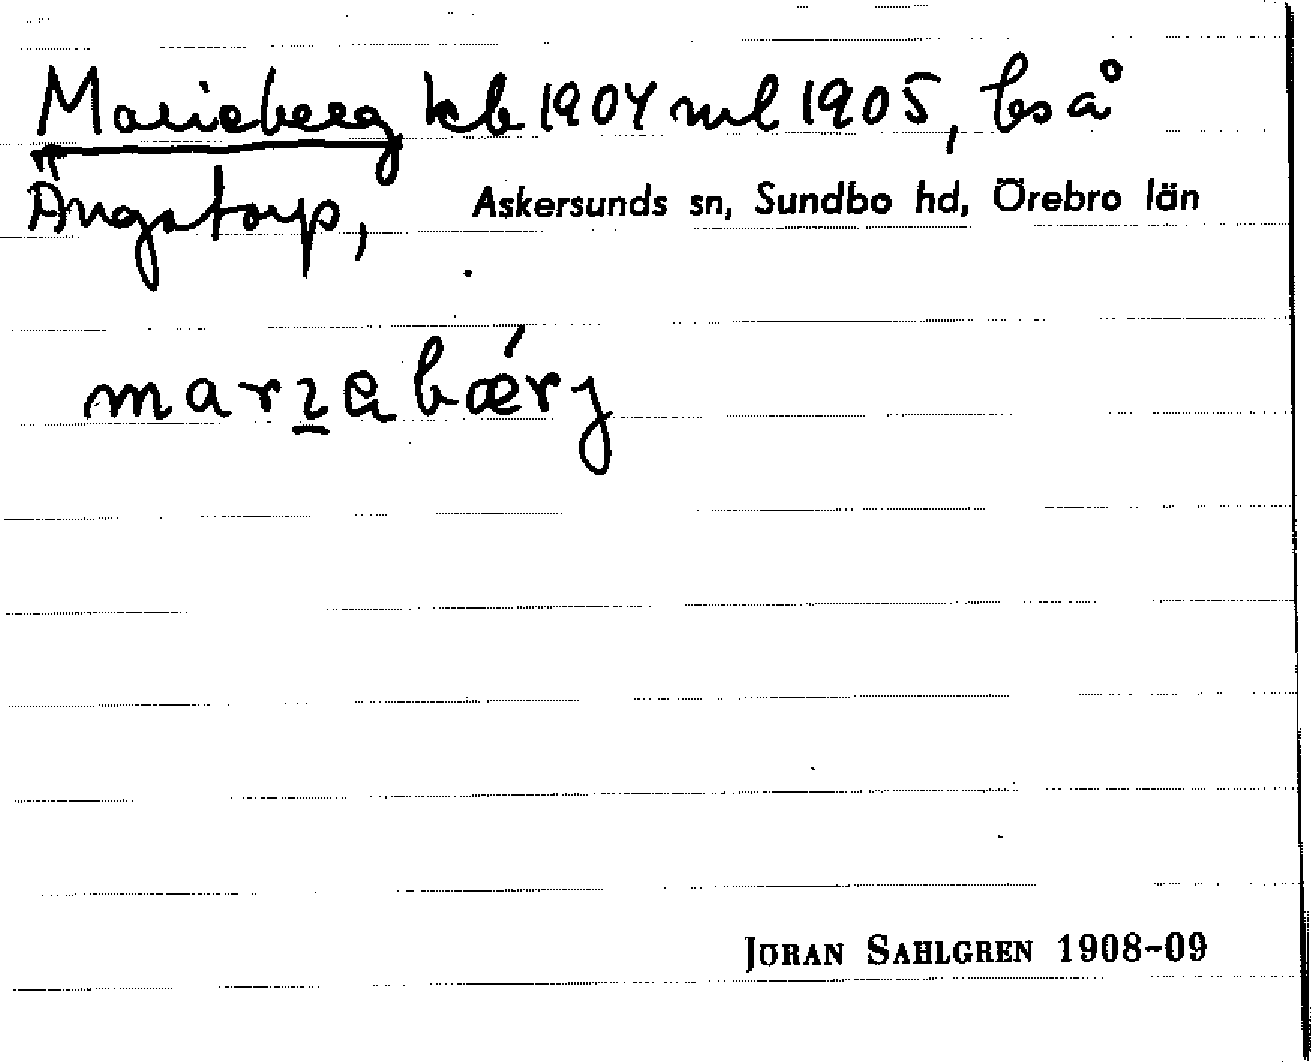 Marieberg kb 1904 ml 1905, bs å
Ängatorp, Askersunds sn, Sundbo hd, Örebro län
JÖRAN SAHLGREN 1908-09